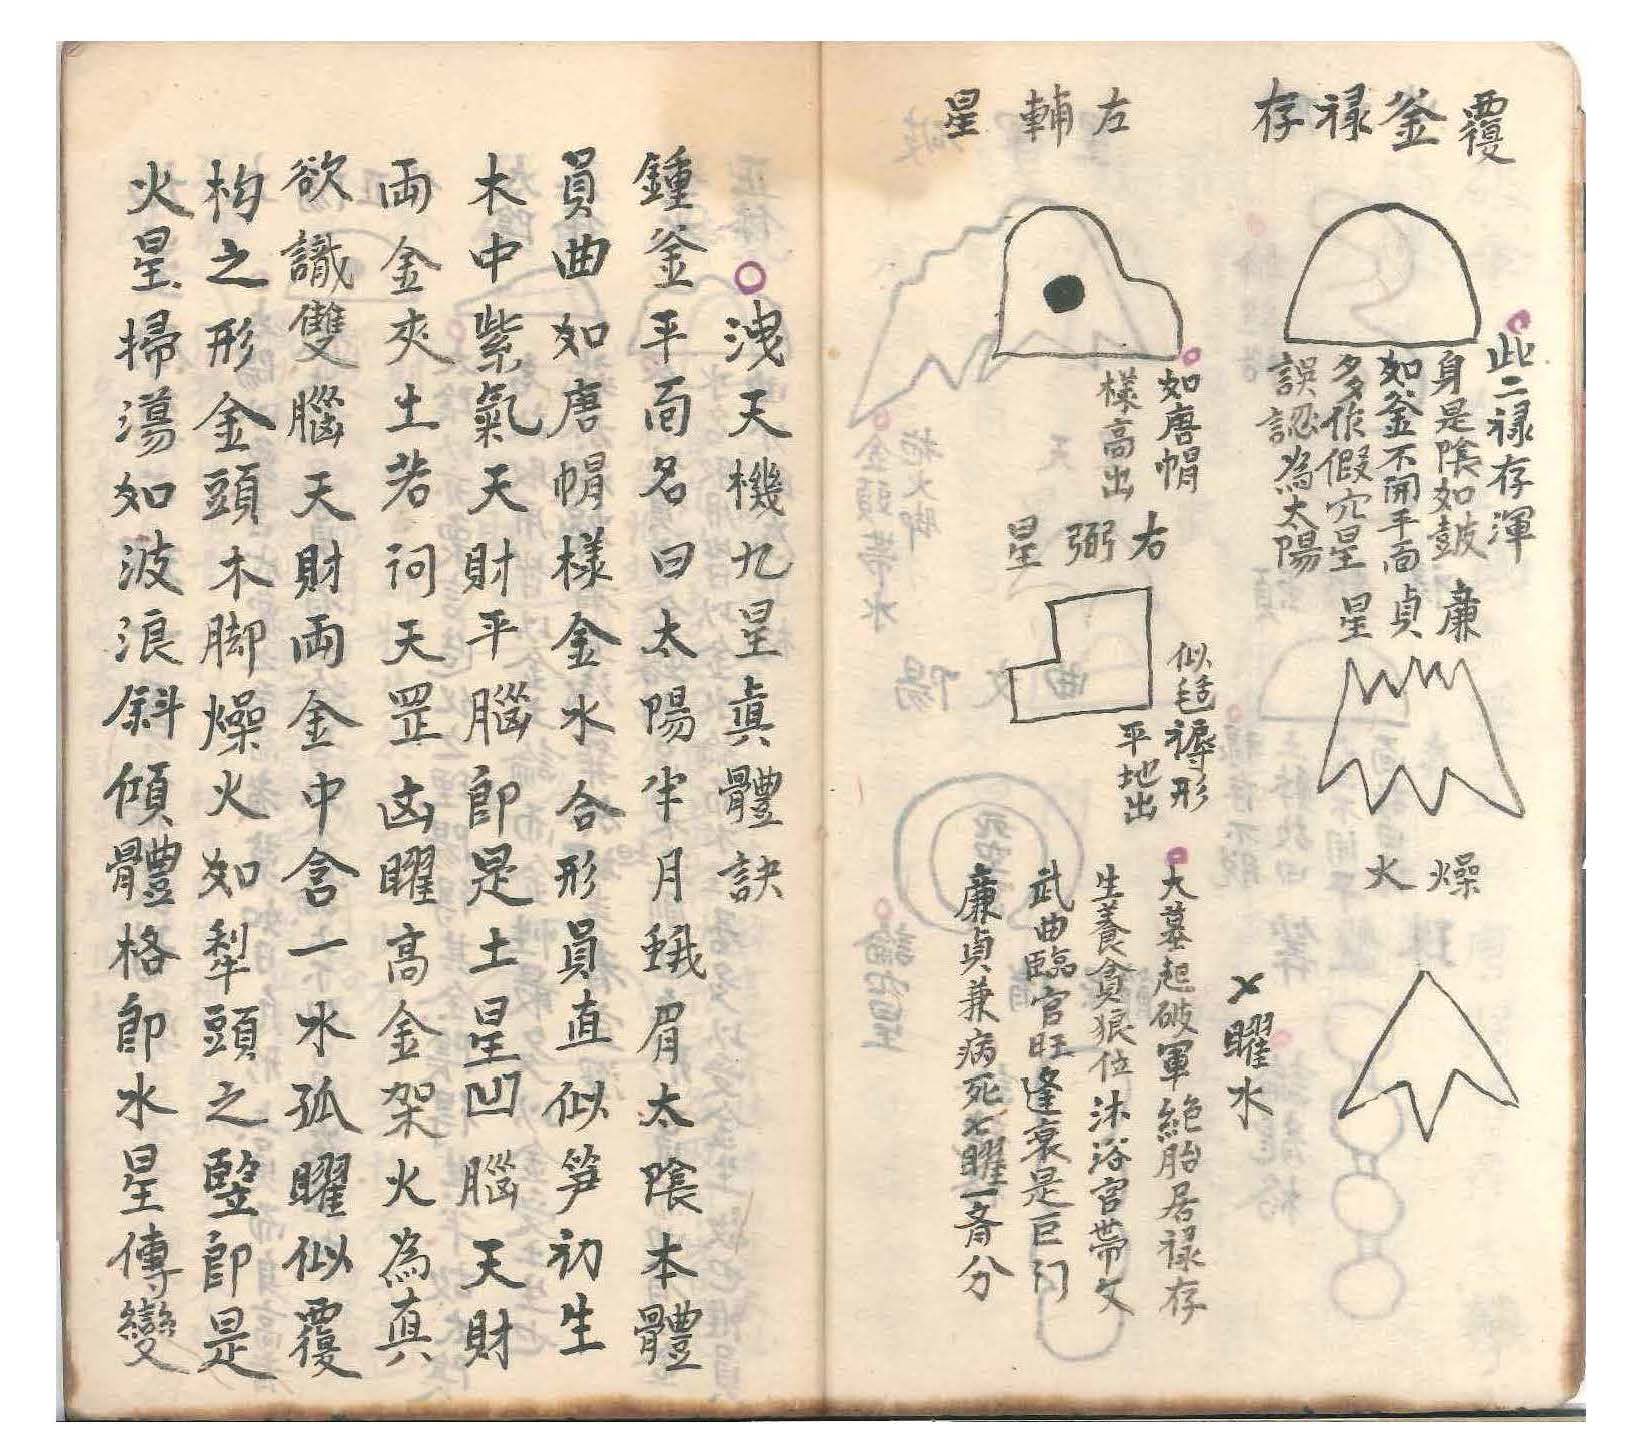 覆釜禄存
此二禄存渾
身是陰如皷
如釜不開平面
多作假穴星
誤認為太陽
廉貞星
燥火
左輔星
如唐帽
樣高出
右弼星
似毡褥形
平地出
曜水
大墓起破軍絶胎居禄存
生養貪狼位沐浴宮帶文
武曲臨官旺逢衰是巨门
廉貞兼病死七曜一齐分
洩天機九星眞體訣
鍾釜平面名曰太陽半月蛾眉太陰本體
員曲如唐帽樣金水合形員直似笋初生
木中紫氣天財平腦即是土星凹腦天財
両金夾土若祠天罡凶曜高金架火為真
欲識雙腦天財両金中含一水孤曜似覆
杓之形金頭木脚燥火如犁頭之竪即是
火星掃蕩如波浪斜傾體格即水星傳變